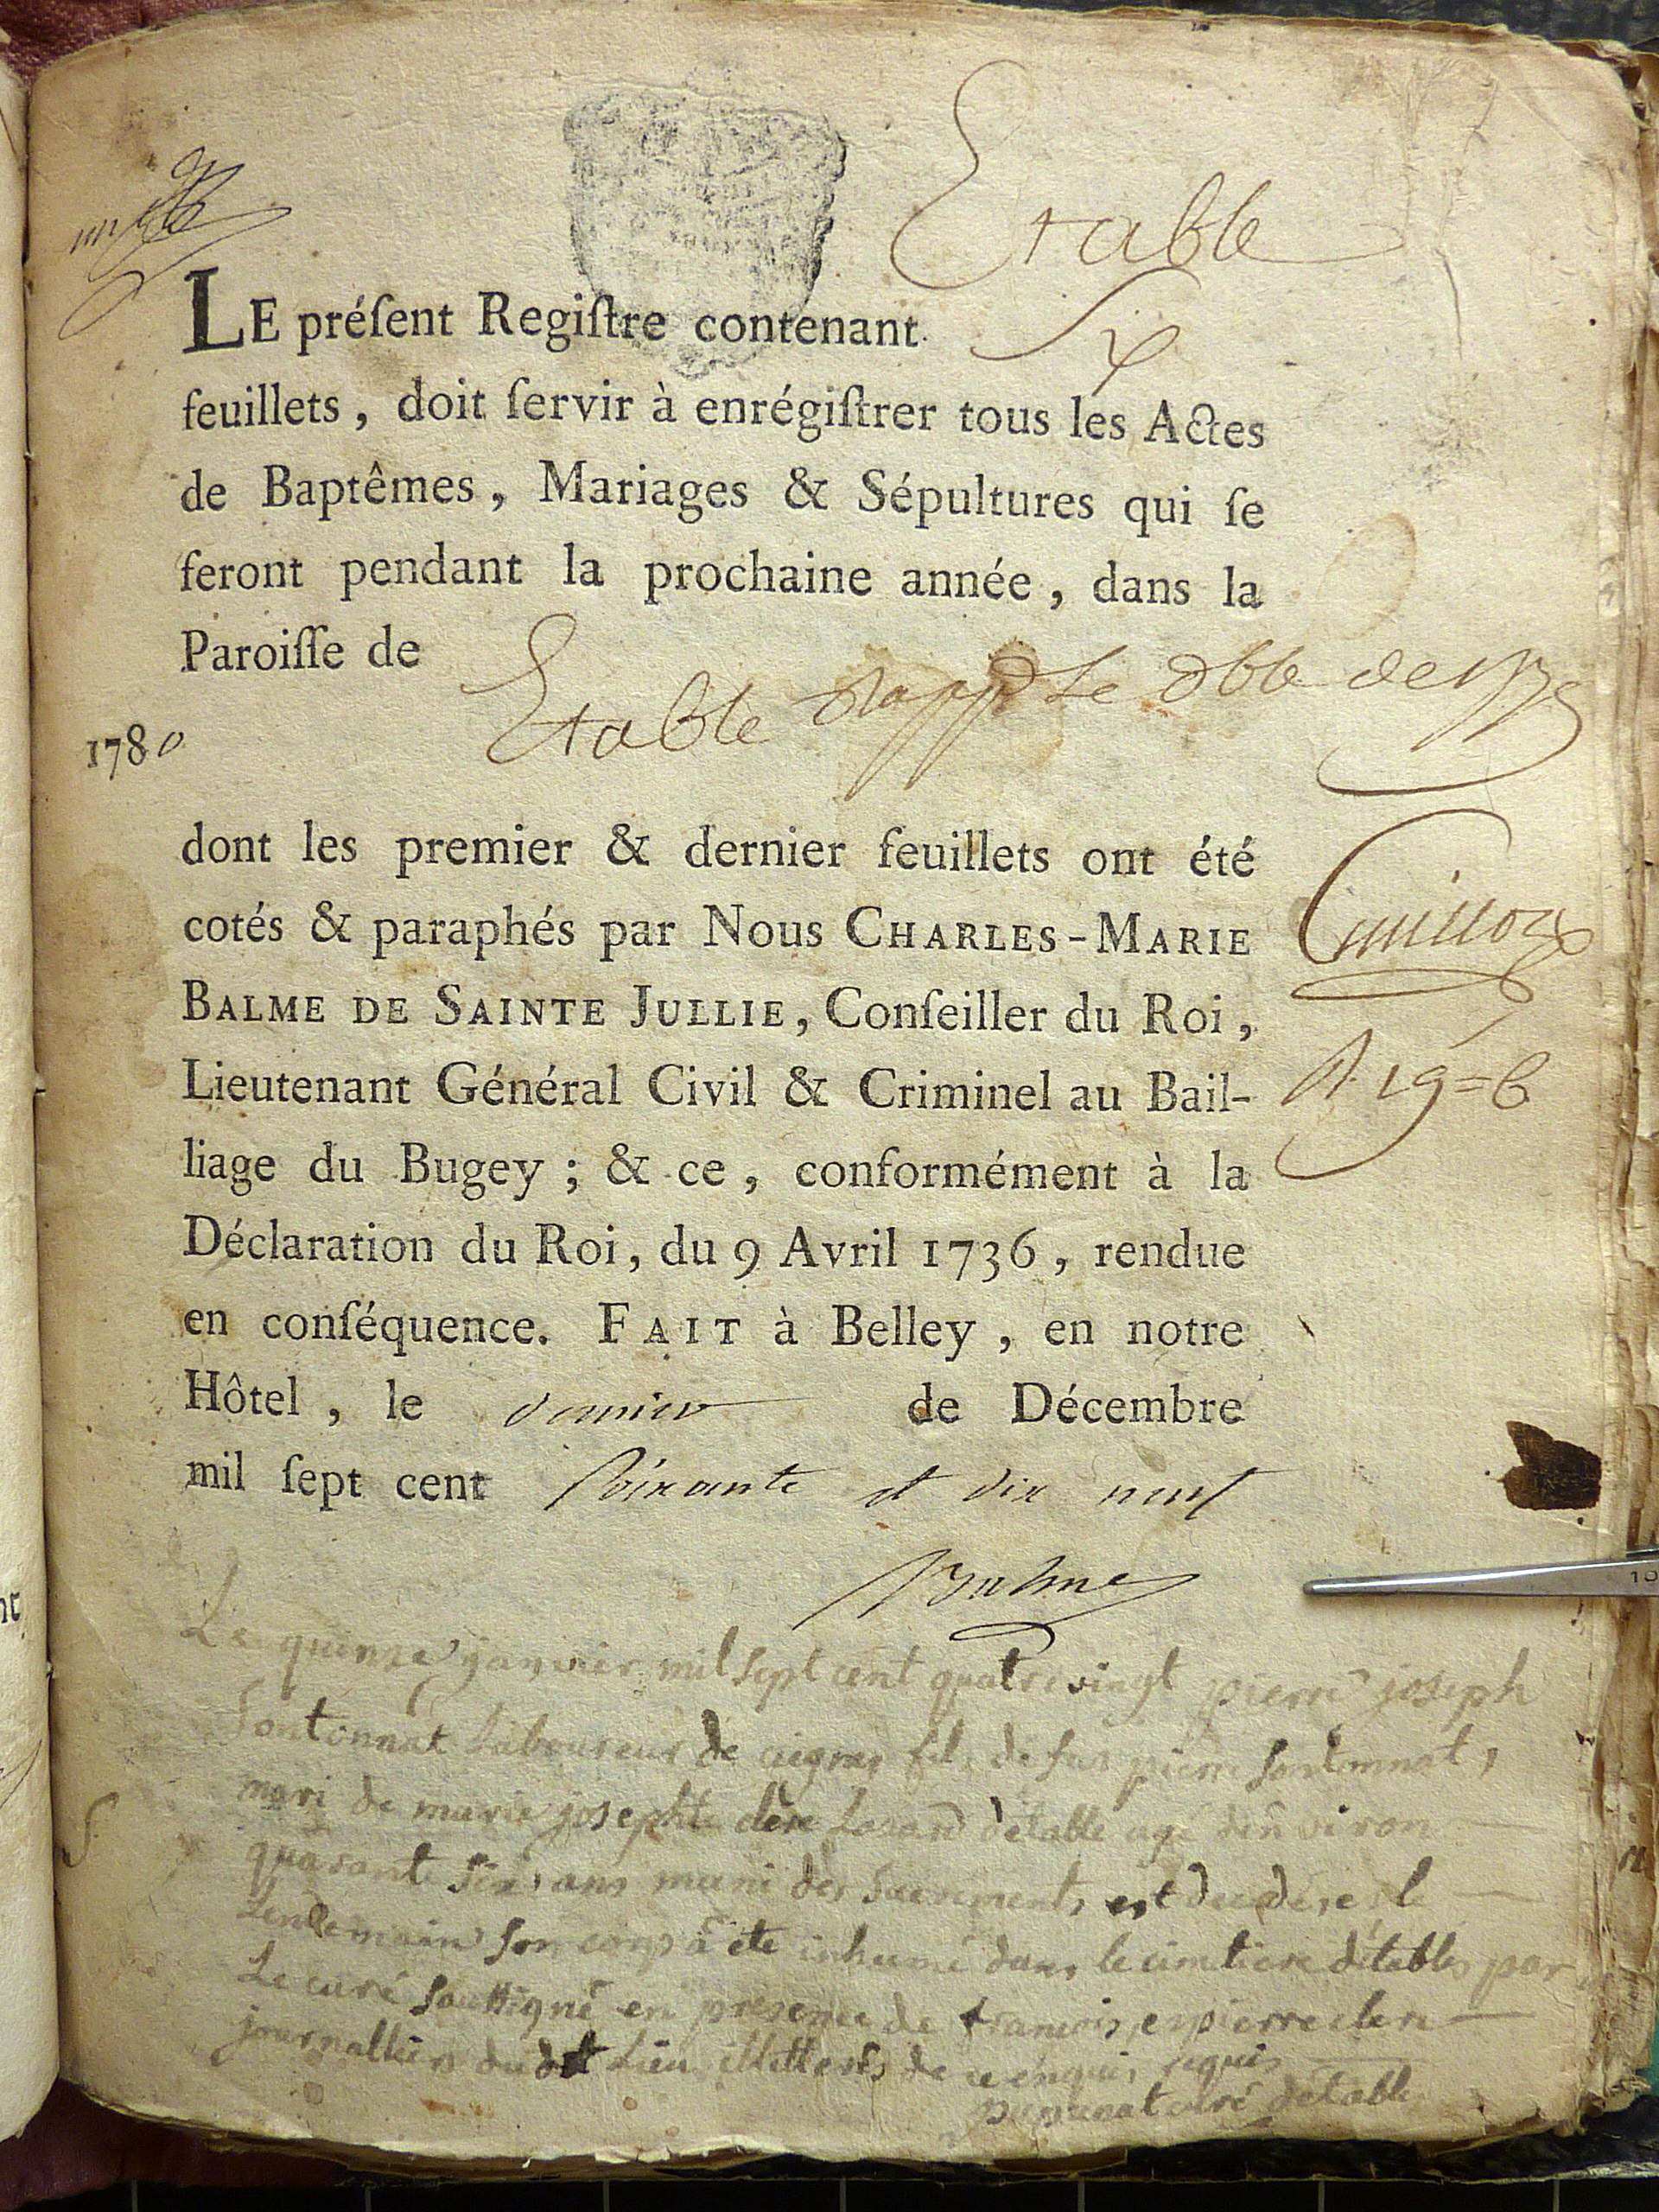 Etable
LE préſent Regiſtre contenant Six
feuillets, doit ſervir à enrégiſtrer tous les Actes
de Baptêmes, Mariages & Sépultures qui ſe
feront pendant la prochaine année, dans la
Paroiſſe de Etable
1780
dont les premier & dernier feuillets ont été
cotés & paraphés par Nous CHARLES-MARIE
BALME DE SAINTE JULLIE, Conſeiller du Roi,
Lieutenant Général Civil & Criminel au Bail-
liage du Bugey; & ce, conformément à la
Déclaration du Roi, du 9 Avril 1736, rendue
en conſéquence. FAIT à Belley, en notre
Hôtel, le dernier de Décembre
mil ſept cent Soixante et dix neuf
Balme
Le quinze janvier mil sept cent quatre vingt pierre joseph
Fontonnat Laboureur de fils de feu pierre
mari de marie josephte détable agé denviron
quarante six ans muni des Sacrements est decédé et le
Lendemain Son corps a été inhumé dans le cimetiere détables par
Le curé Soussigné en presence de francois et pierre
journalliers dudt Lieu illitterés de ce enquis requis
curé détable
S
10